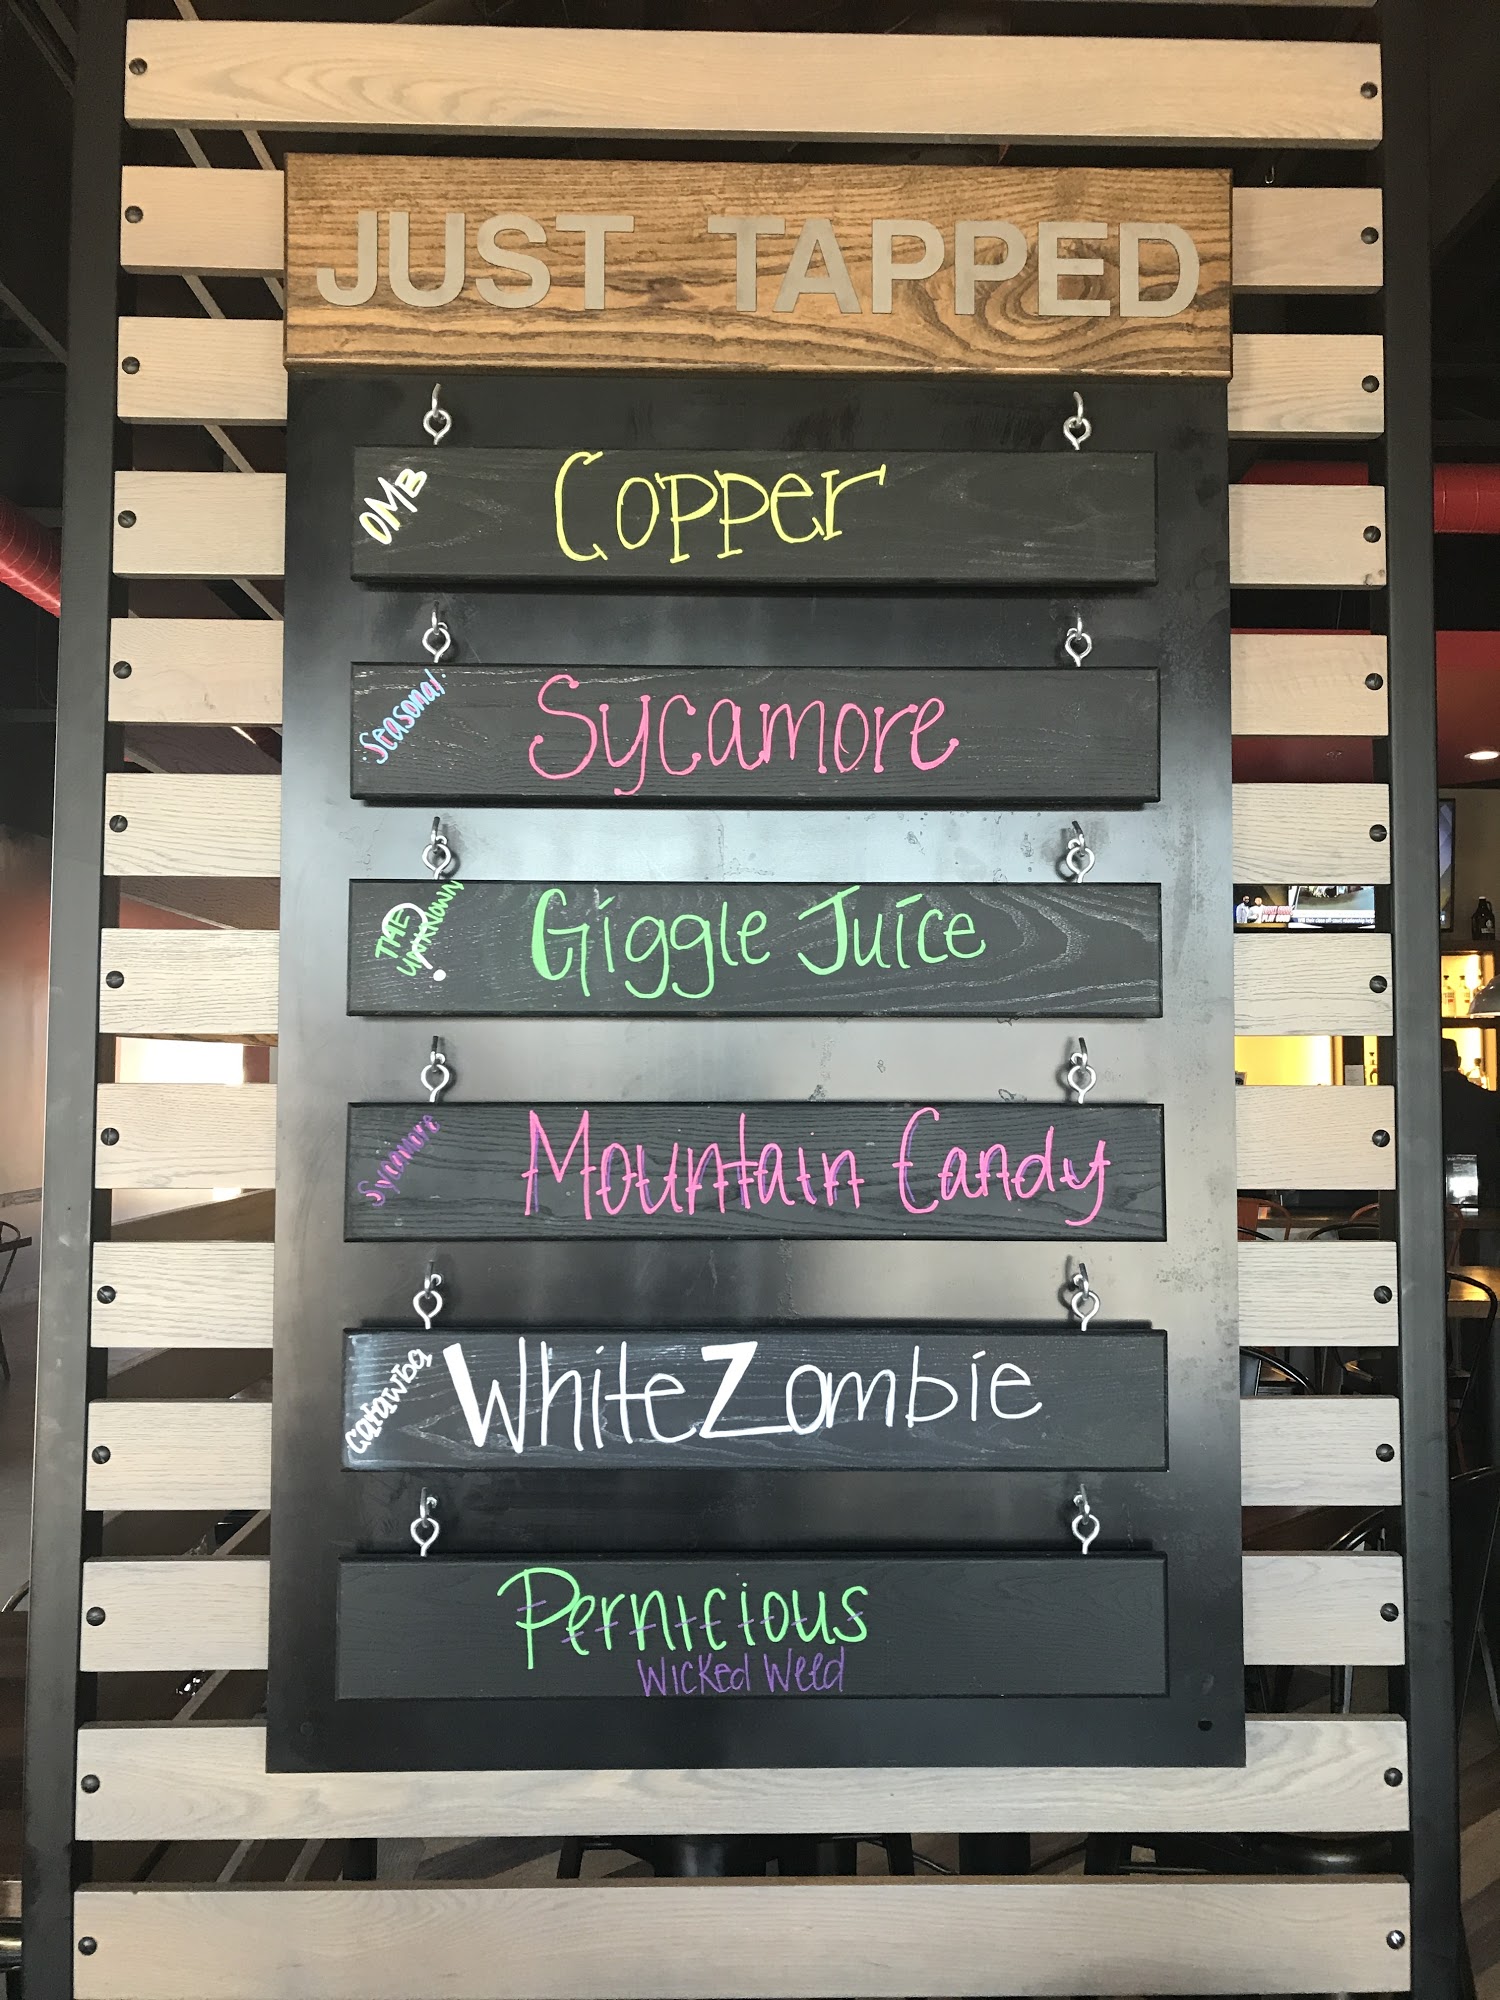 JUST TAPPED
OMB
Copper
Seasonal
Sycamore
THE
UNKNOWN
Giggle Juice
Sycamore
Mountain Candy
Catawba
White Zombie
Pernicious
Wicked Weed